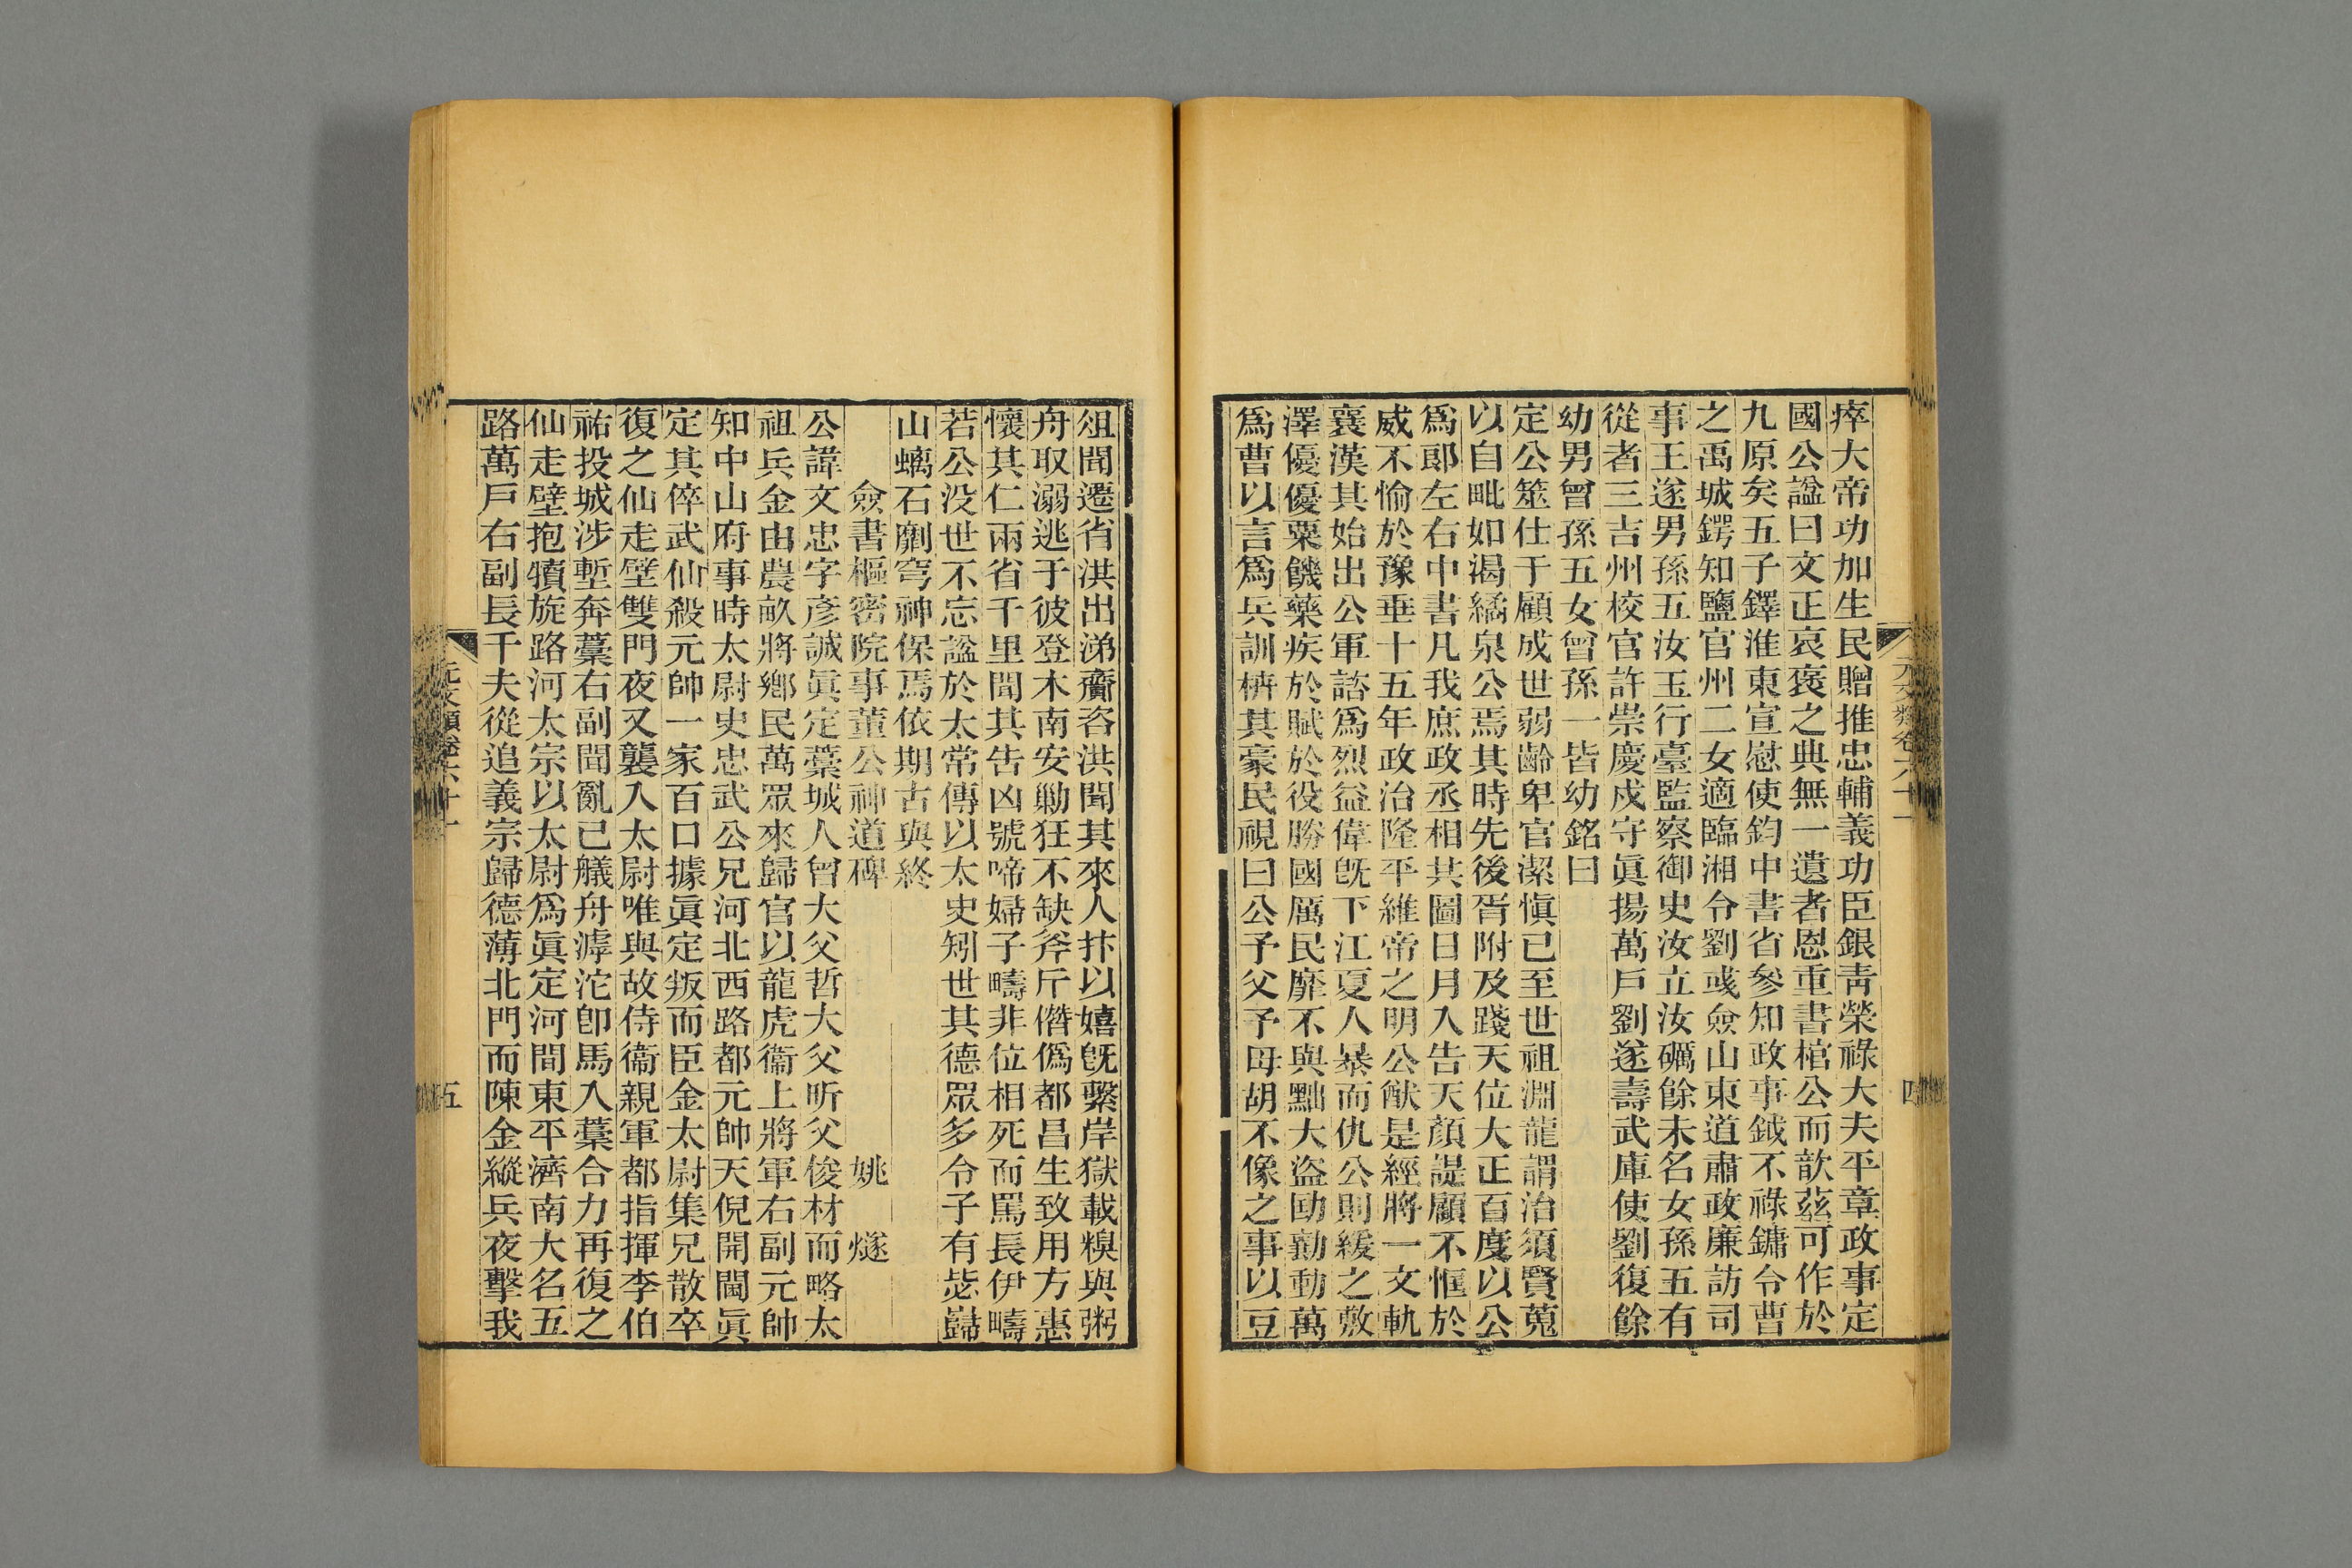 瘁大帝功加生民贈推忠輔義功臣銀靑榮祿大夫平章政事定
國公諡曰文正哀褒之典無一遺者恩重書棺公而歆茲可作於
九原矣五子鐸淮東宣慰使鈞中書省參知政事鉞不祿鏞令曹
之禹城鍔知鹽官州二女適臨湘令劉彧僉山東道肅政廉訪司
事王遂男孫五汝玉行臺監察御史汝立汝礪餘未名女孫五有
從者三吉州校官許崇慶戍守眞揚萬戶劉遂壽武庫使劉復餘
幼男曾孫五女曾孫一皆幼銘曰
定公筮仕于顧成世弱齡卑官潔愼已至世祖淵龍謂治須賢蒐
以自毗如渴繘泉公焉其時先後胥附及踐天位大正百度以公
爲郎左右中書凡我庶政丞相其圖日月入告天顏諟顧不恇於
威不愉於豫垂十五年政治隆平維帝之明公猷是經將一文軌
襄漢其始出公軍諮爲烈益偉旣下江夏人暴而仇公則緩之敷
澤優優粟饑藥疾於賦於役勝國厲民靡不與黜大盗勖勷動萬
爲曹以言爲兵訓枿其豪民視曰公予父予母胡不像之事以豆
元文類卷六十一
四
俎聞遷省洪出涕齎咨洪聞其來人抃以嬉旣繫岸獄載糗與粥
舟取溺逃于彼登木南安勦狂不缺斧斤僭僞都昌生致用方惠
懷其仁兩省千里聞其告凶號啼婦子疇非位相死而罵長伊疇
若公没世不忘諡於太常傳以太史矧世其德眾多令子有毖巋
山螭石劘穹神保焉依期古與終
僉書樞密院事董公神道碑 姚燧
公諱文忠字彥誠眞定藁城人曾大父哲大父昕父俊材而略太
祖兵金由農畝將鄉民萬眾來歸官以龍虎衞上將軍右副元帥
知中山府事時太尉史忠武公兄河北西路都元帥天倪開閫眞
定其倅武仙殺元帥一家百口據眞定叛而臣金太尉集兄散卒
復之仙走壁雙門夜又襲入太尉唯與故侍衞親軍都指揮李伯
祐投城涉塹奔藁右副聞亂已艤舟滹沱卽馬入藁合力再復之
仙走壁抱犢旋路河太宗以太尉爲眞定河間東平濟南大名五
路萬戶右副長千夫從追義宗歸德薄北門而陳金縱兵夜擊我
元文類卷六十一
五